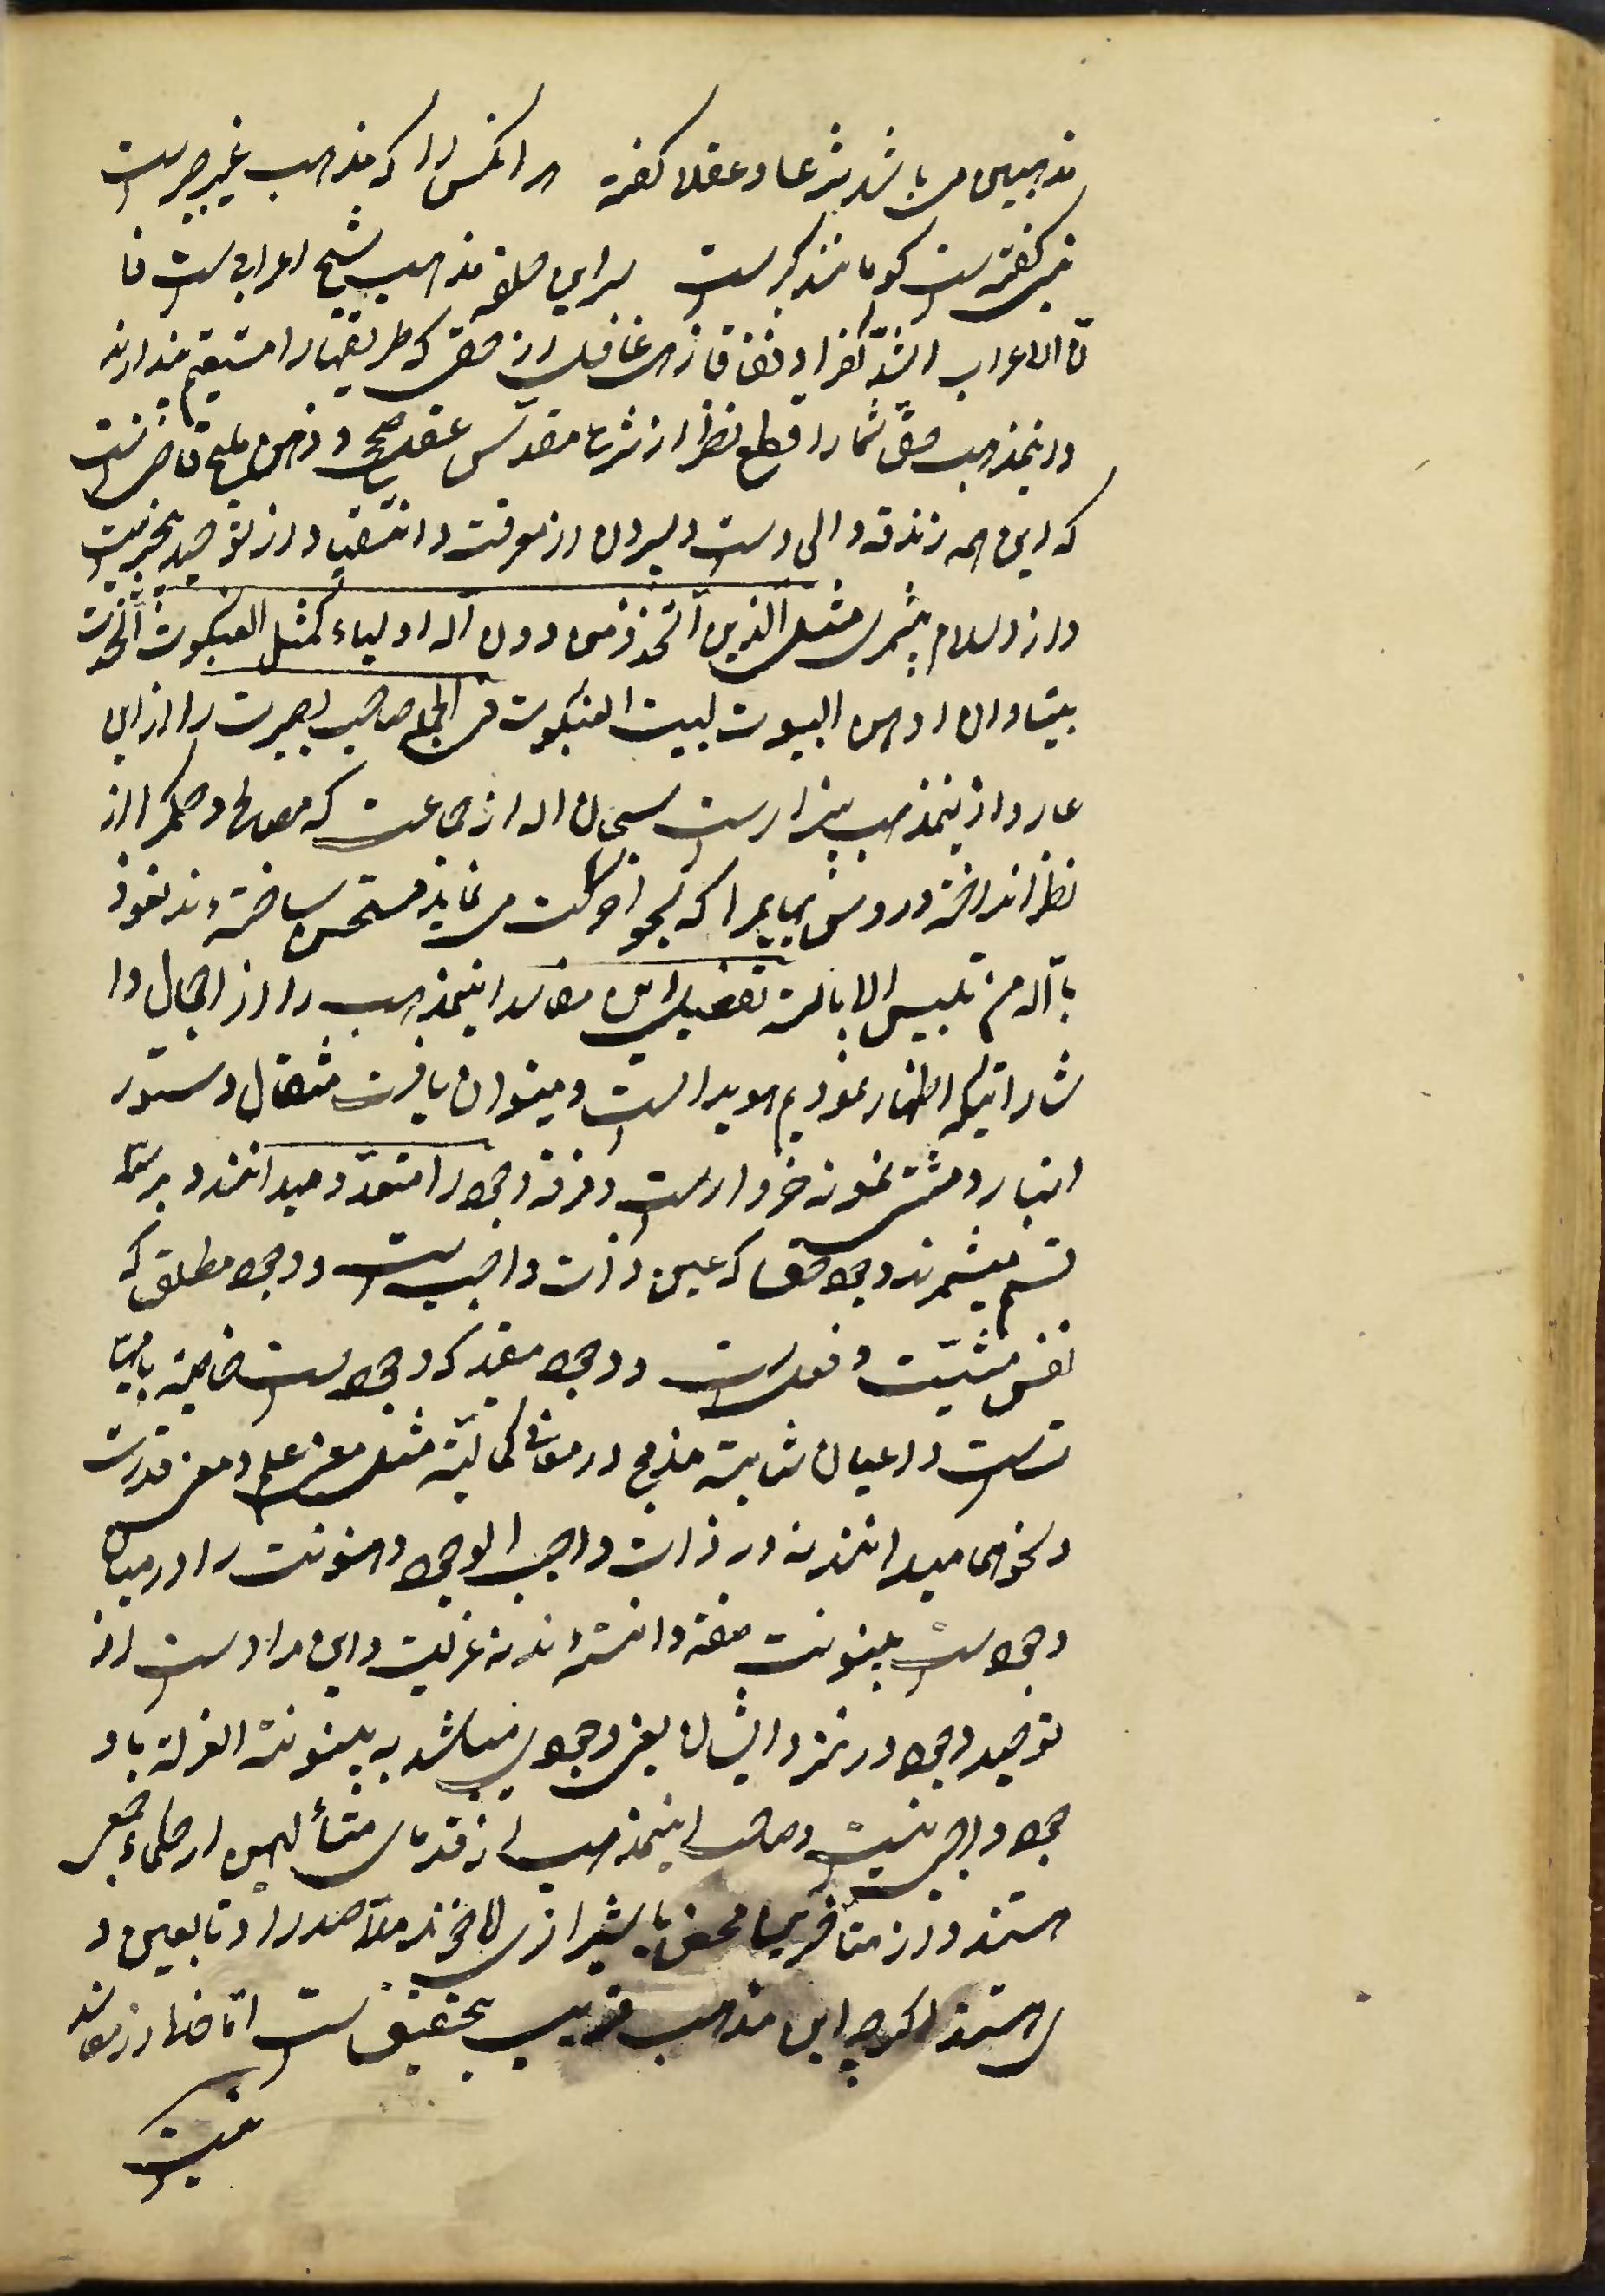 مذهبیی می باشد شرعا و عقلا گفته هر انکس را که مذهب غیر جبر است
نبی گفته است کو مانند کبر است براین صلفه مذهب شیخ اعرابی است فا
ن الاعراب اشدّ کفرا و نفاقا زهی غافل از حق که طریقها را مستقیم پندارند
در اینمذهب حقّ شما را قطع نظر از شرع مقدس عقل صحیح و ذهن ملیح قاضی است
که این همه زندقه و الحادست و بیرون از معرفت و انتقیاد از توحید بخبر نیست
و از اسلام بثمری مثل الّذین اتّخذو من دون الله اولیاء کمثل العنکبوت اتّخذت
بیتا و ان اوهن البیوت لبیت العنکبوت فی الجمله صاحب بصیرت را از این
عار و از اینمذهب بیزار است سبحان الله از جماعت که مصالح و حکم را از
نظر انداخته و روش بهایم را که بنحو احرکت می نماید مستحسن ساخته اند نعوذ
بالله من تلبیس الابالسة تفصیل این مفاسد اینمذهب را از اجمال وا
شاراتیکه اظهار نمودیم هویداست و میتوان یافت مثقال دستور
انبار و مشت نمونه خروار است و فرقه وجود را متعدّد میدانند و بر سه
قسم میشمرند وجود حق که عین ذات واجب است و وجود مطلق که
نفس مشیّت و فعل است و وجود مقید که وجود است خاصه باهیا
تست و اعیان ثابته مندمج در معانی کمالیّه مثل معنی علم و معنی قدرت
و نحوهما میدانند نه در ذات واجب الوجود و بینونت را در میان
وجود است بینونت صفة دانسته اند نه عزلت و این مراد است از
توحید وجود در نزد ایشان یعنی وجودی نمیباشد به بینونة العزلة با و
جود واجبی نیست و صاحب اینمذهب از قدمای متألهین از حکماء بعضی
هستند و از متأخرین ما محض با شیرازی آخوند ملا صدرا و تابعین و
ی هستند اگر چه این مذهب قریب بتحقیق است امّا خالی از مفاسد
نیست